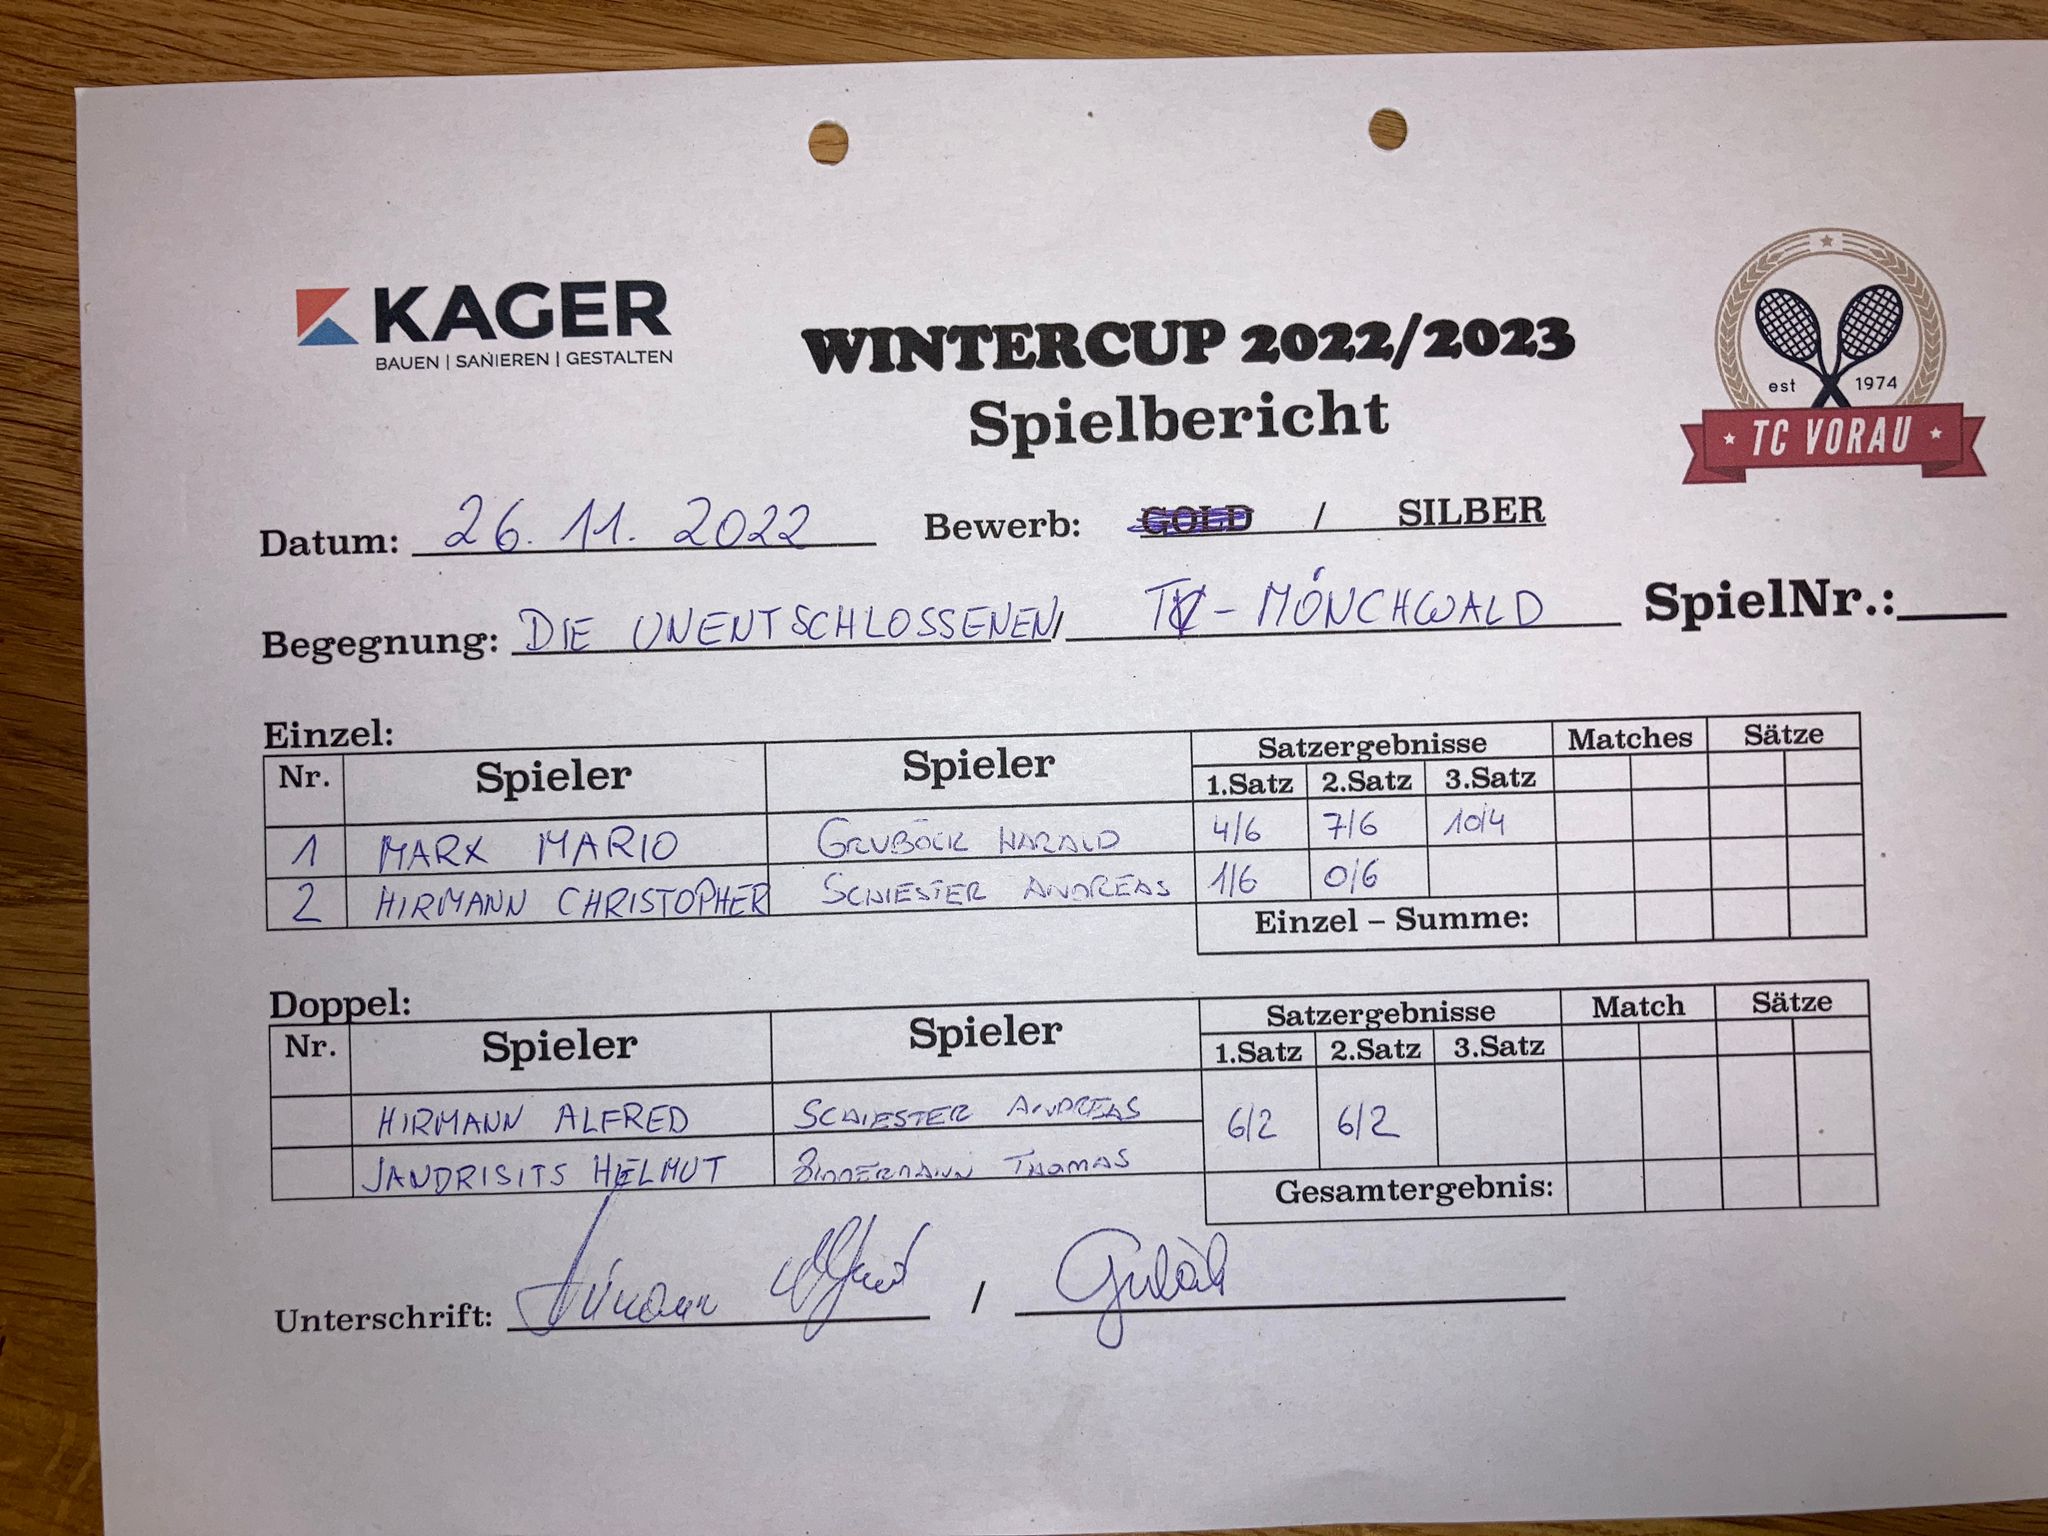 KAGER
BAUEN | SANIEREN | GESTALTEN
WINTERCUP 2022/2023
Spielbericht
est 1974
TC VORAU
Datum: 26.11.2022 Bewerb: GOLD / SILBER
Begegnung: DIE UNENTSCHLOSSENEN / TC - MÖNCHWALD SpielNr.:
Einzel:
Nr. Spieler Spieler Satzergebnisse Matches Sätze
1.Satz 2.Satz 3.Satz
1 MARX MARIO GRUBÖCK HARALD 4/6 7/6 10/4
2 HIRMANN CHRISTOPHER SCHIESTER ANDREAS 1/6 0/6
Einzel – Summe:
Doppel:
Nr. Spieler Spieler Satzergebnisse Match Sätze
1.Satz 2.Satz 3.Satz
HIRMANN ALFRED SCHIESTER ANDREAS 6/2 6/2
JANDRISITS HELMUT THOMAS
Gesamtergebnis:
Unterschrift: Hirmann Alfred /